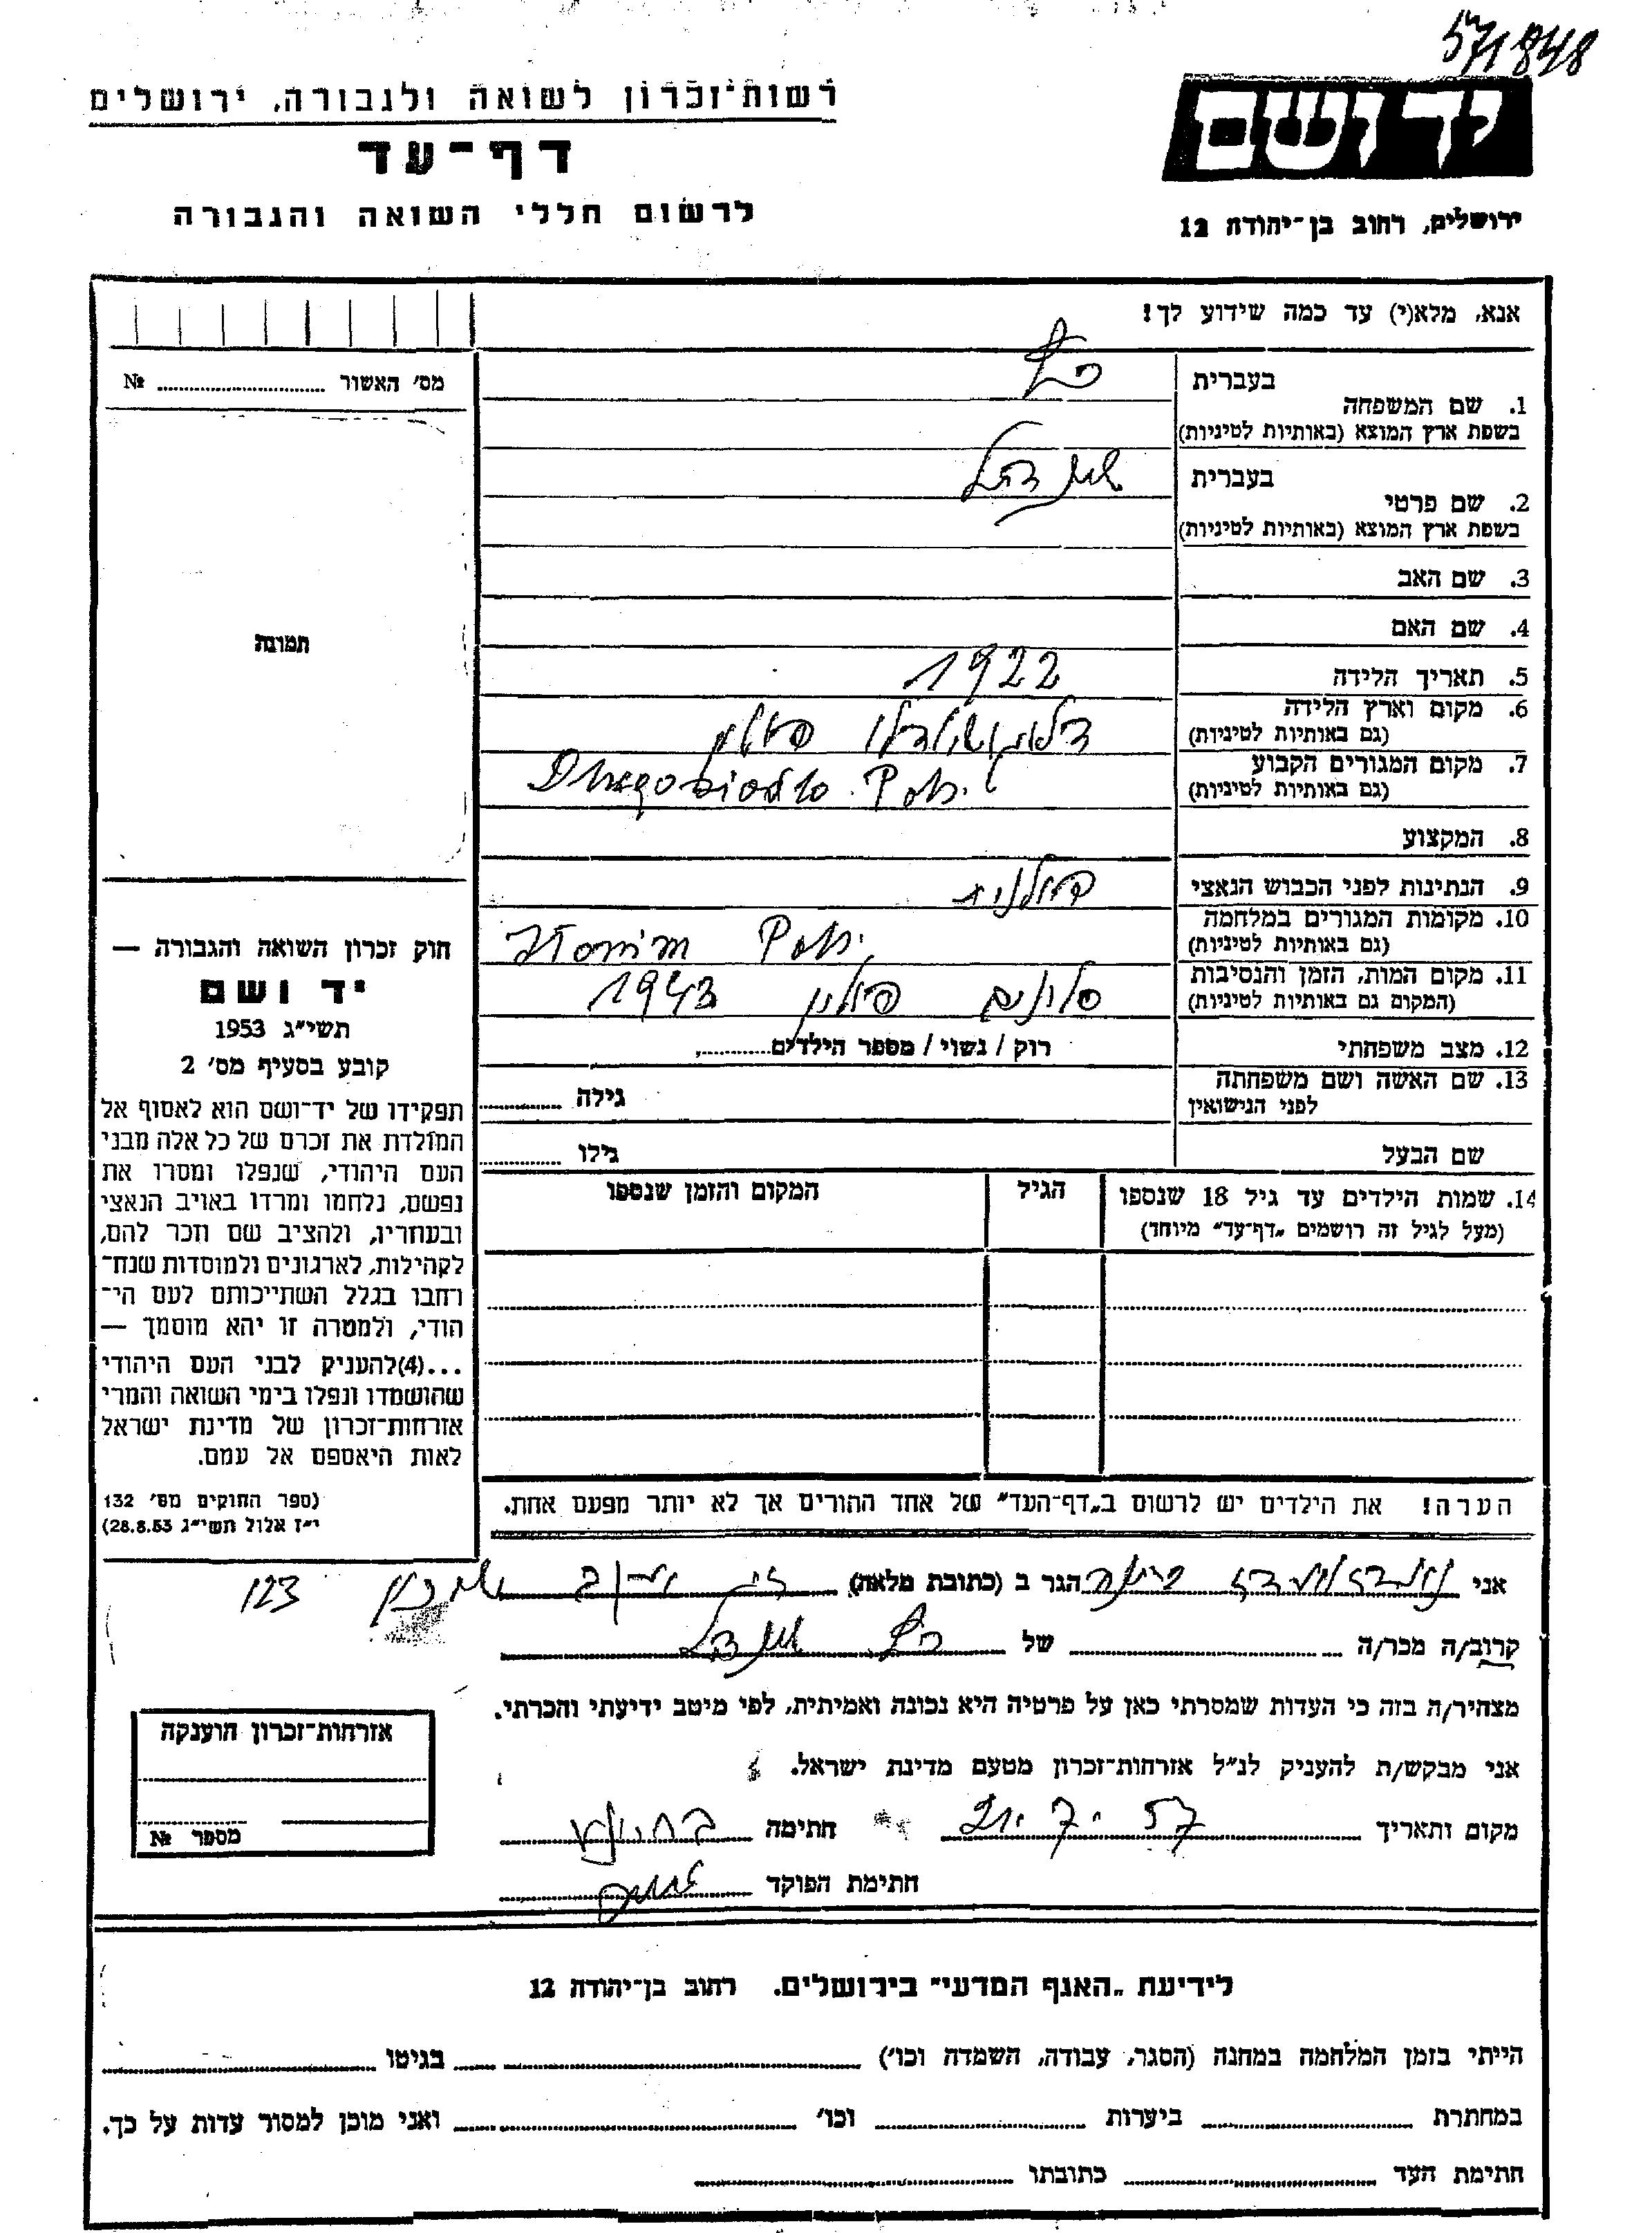 571848
רשות־זכרון לשואה ולגבורה, ירושלים
דף־עד
לרשום חללי השואה והגבורה
יד ושם
ירושלים, רחוב בן־יהודה 12
אנא, מלא(י) עד כמה שידוע לך!
מס' האשור № 
תמונה
בעברית כץ
1. שם המשפחה
בשפת ארץ המוצא (באותיות לטיניות)
בעברית
2. שם פרטי
בשפת ארץ המוצא (באותיות לטיניות)
3. שם האב
4. שם האם
5. תאריך הלידה 1922
6. מקום וארץ הלידה פולין
(גם באותיות לטיניות)
7. מקום המגורים הקבוע
(גם באותיות לטיניות)
8. המקצוע
9. הנתינות לפני הכבוש הנאצי פולנית
10. מקומות המגורים במלחמה
(גם באותיות לטיניות)
11. מקום המות, הזמן והנסיבות סלונים פולין 1943
(המקום גם באותיות לטיניות)
12. מצב משפחתי רוק / נשוי / מספר הילדים
13. שם האשה ושם משפחתה גילה
לפני הנישואין
שם הבעל גילו
14. שמות הילדים עד גיל 18 שנספו הגיל המקום והזמן שנספו
(מעל לגיל זה רושמים „דף־עד” מיוחד)
הערה! את הילדים יש לרשום ב„דף־העד” של אחד ההורים אך לא יותר מפעם אחת.
חוק זכרון השואה והגבורה —
יד ושם
תשי״ג 1953
קובע בסעיף מס' 2
תפקידו של יד־ושם הוא לאסוף אל
המולדת את זכרם של כל אלה מבני
העם היהודי, שנפלו ומסרו את
נפשם, נלחמו ומרדו באויב הנאצי
ובעוזריו, ולהציב שם וזכר להם,
לקהילות, לארגונים ולמוסדות שנח־
רחבו בגלל השתייכותם לעם הי־
הודי, ולמטרה זו יהא מוסמך —
...(4)להעניק לבני העם היהודי
שהושמדו ונפלו בימי השואה והמרי
אזרחות־זכרון של מדינת ישראל
לאות היאספם אל עמם.
(ספר החוקים מס' 132
י״ז אלול תשי״ג 28.8.53)
אני הגר ב (כתובת מלאה) 123
קרוב/ה מכר/ה של כץ
מצהיר/ה בזה כי העדות שמסרתי כאן על פרטיה היא נכונה ואמיתית, לפי מיטב ידיעתי והכרתי.
אני מבקש/ת להעניק לנ״ל אזרחות־זכרון מטעם מדינת ישראל.
מקום ותאריך חתימה
חתימת הפוקד
אזרחות־זכרון הוענקה
מספר №
לידיעת „האגף המדעי” בירושלים. רחוב בן־יהודה 12
הייתי בזמן המלחמה במחנה (הסגר, עבודה, השמדה וכו') בגיטו
במחתרת ביערות וכו' ואני מוכן למסור עדות על כך.
חתימת העד כתובתו